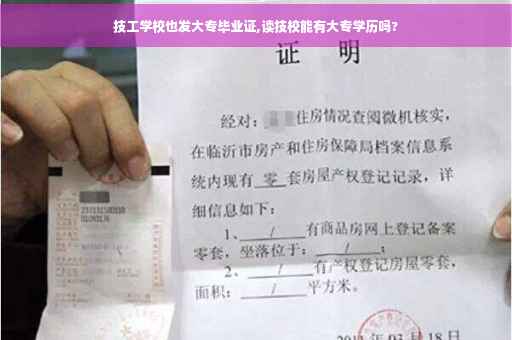 技工学校也发大专毕业证,读技校能有大专学历吗?
证 明
经对: 住房情况查阅微机核实,
在临沂市房产和住房保障局档案信息系
统内现有 零 套房屋产权登记记录,详
细信息如下:
1、 / 有商品房网上登记备案
零套,坐落位于: / ;
2、 / 有产权登记房屋零套,
面积: / 平方米。
03月18日